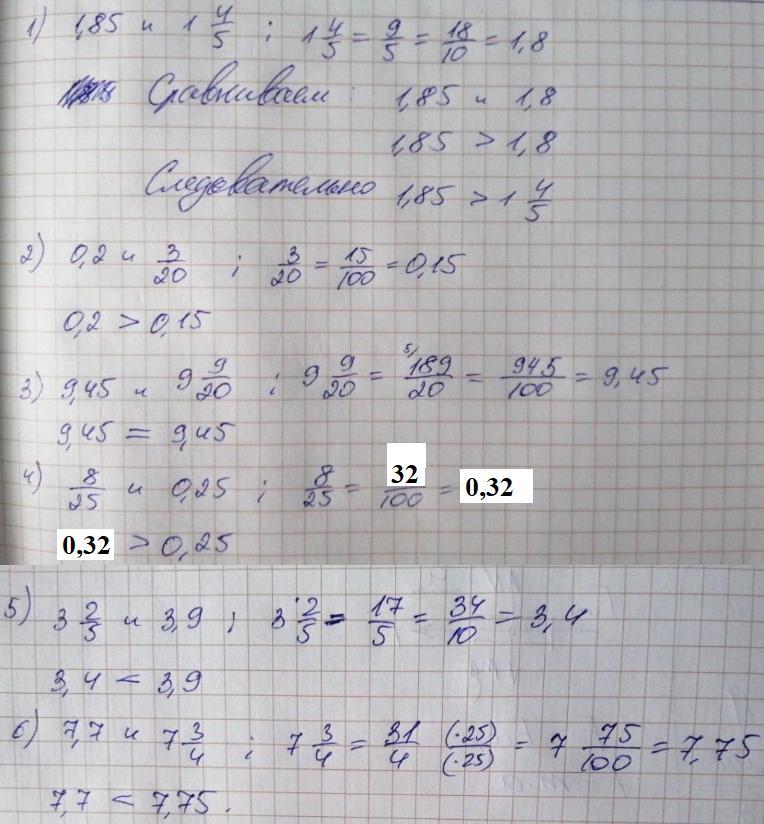 1) 1,85 и 1 4/5 ; 1 4/5 = 9/5 = 18/10 = 1,8
Сравниваем: 1,85 и 1,8
1,85 > 1,8
Следовательно 1,85 > 1 4/5
2) 0,2 и 3/20 ; 3/20 = 15/100 = 0,15
0,2 > 0,15
3) 9,45 и 9 9/20 ; 9 9/20 = 5) 189/20 = 945/100 = 9,45
9,45 = 9,45
4) 8/25 и 0,25 ; 8/25 = 32/100 = 0,32
0,32 > 0,25
5) 3 2/5 и 3,9 ; 3 2/5 = 17/5 = 34/10 = 3,4
3,4 < 3,9
6) 7,7 и 7 3/4 ; 7 3/4 = 31/4 (·25)/(·25) = 7 75/100 = 7,75
7,7 < 7,75.